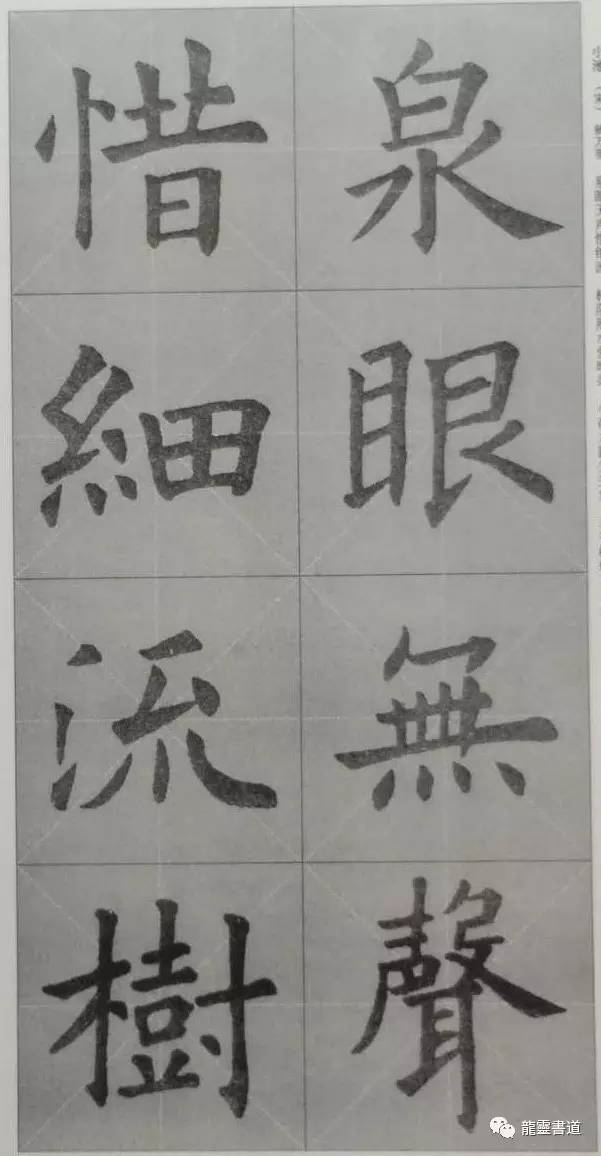 泉眼無聲
惜細流樹
龍靈書道